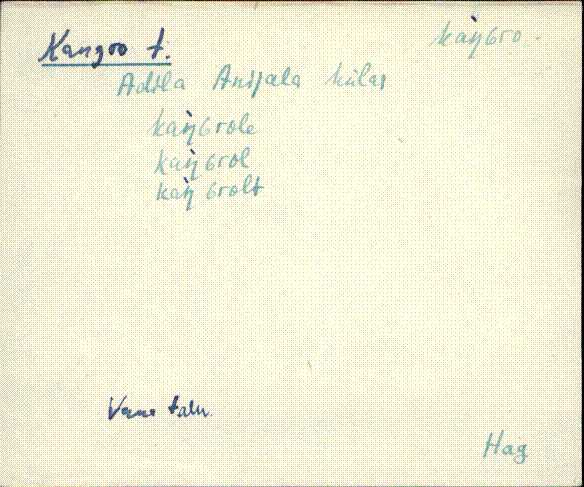 Kangro t.
kaŋ̀Gro -
Adila Anijala külas
kaŋ̀Grole
kaŋ̀Grol
kaŋ̀Grolt
Vana talu.
Hag